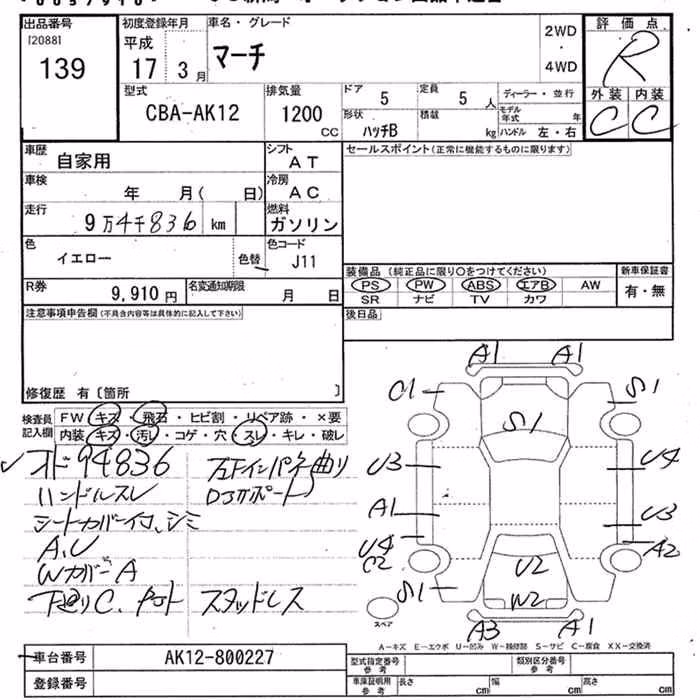 出品番号
[2088]
139
初度登録年月
平成
17 3月
車名・グレード
マーチ
2WD
・
4WD
評価点
R
外装 内装
C C
型式
CBA-AK12
排気量
1200
CC
ドア
5
定員
5 人
ディーラー・並行
形状
ハッチB
積載
kg
モデル年式 年
ハンドル 左・右
車歴
自家用
シフト
AT
セールスポイント(正常に機能するものに限ります)
車検
年 月( 日)
冷房
AC
走行
9万4千836 km
燃料
ガソリン
色
イエロー
色替
色コード
J11
装備品 (純正品に限り○をつけてください)
PS PW ABS エアB AW
SR ナビ TV カワ
新車保証書
有・無
R券
9,910 円
名変通知期限
月 日
後日品
注意事項申告欄(不具合内容等は具体的に記入して下さい)
修復歴 有〔箇所 〕
検査員
記入欄
FW キズ・飛石・ヒビ割・リペア跡・×要
内装 キズ・汚レ・コゲ・穴・スレ・キレ・破レ
オド94836
ハンドルスレ
シートカバー付、シミ
A,U
WカバーA
下廻りC、
左Fインパネ曲り
スタッドレス
A1 A1
C1 S1
S1
U3 U4
A1 U3
U4 A2
C2
S1
U2
W2
A3 A1
スペア
A-キズ E-エクボ U-凹み W-補修跡 S-サビ C-腐食 XX-交換済
車台番号
AK12-800227
登録番号
型式指定番号
参考
類別区分番号
参考
車庫証明用
参考
長さ cm
幅 cm
高さ cm